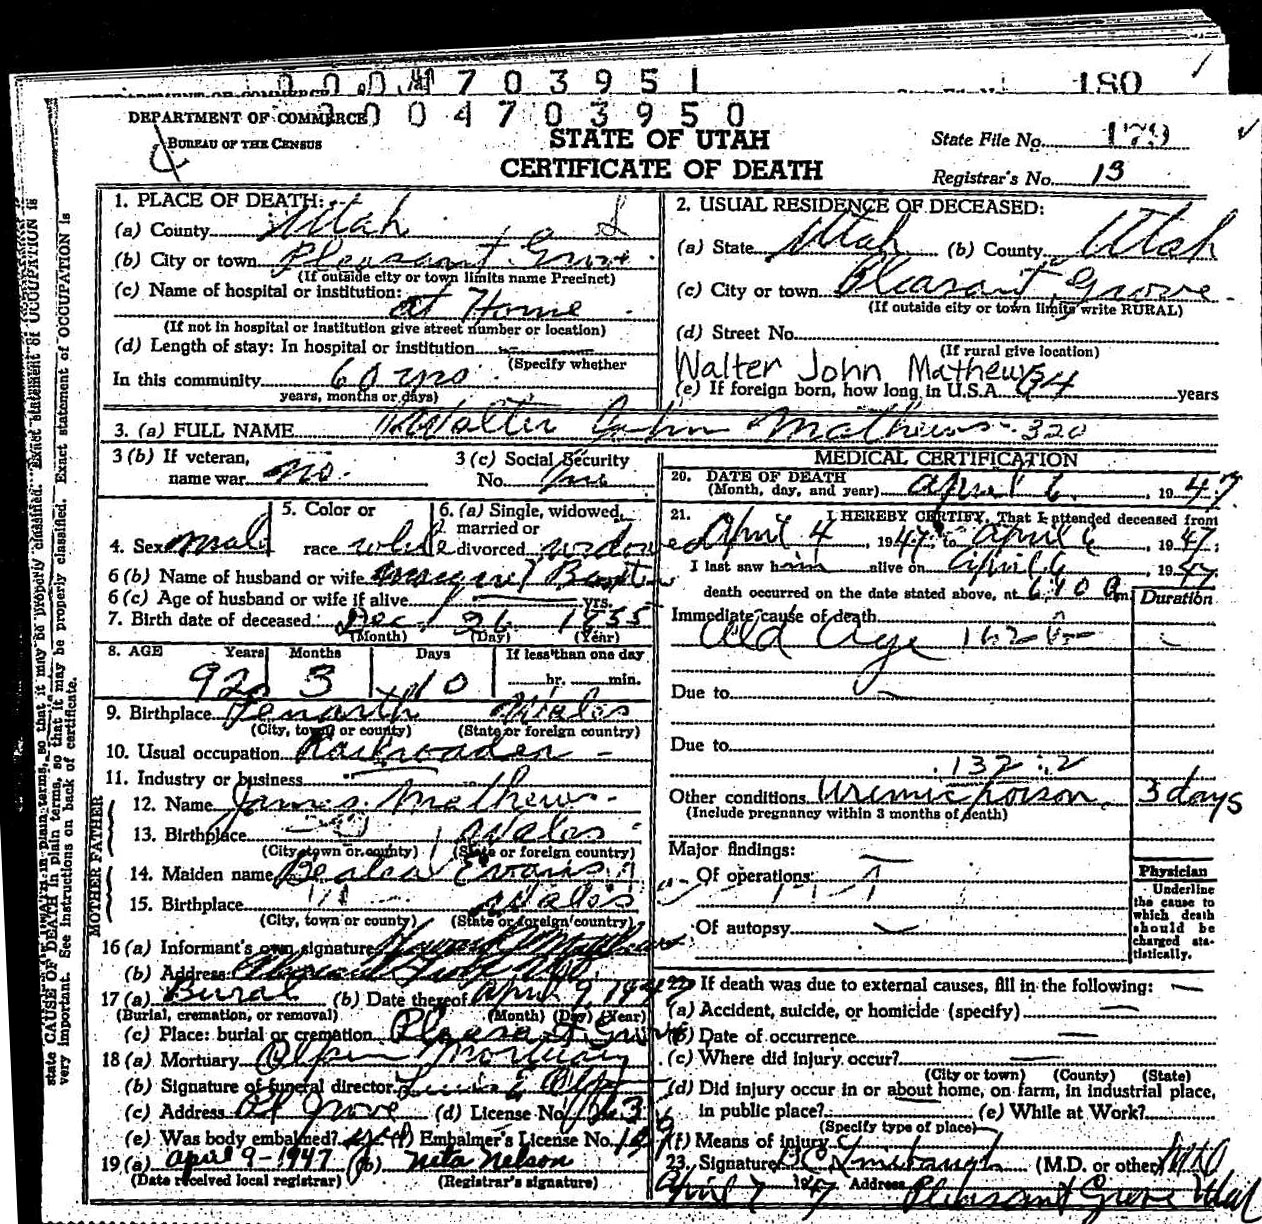 0 0 0 4 7 0 3 9 5 1
180
DEPARTMENT OF COMMERCE
0 0 0 4 7 0 3 9 5 0
BUREAU OF THE CENSUS
STATE OF UTAH
CERTIFICATE OF DEATH
State File No. 179
Registrar's No. 13
state CAUSE OF DEATH in plain terms, so that it may be properly classified. Exact statement of OCCUPATION is
very important. See instructions on back of certificate.
1. PLACE OF DEATH:
(a) County Utah
(b) City or town Pleasant Grove
(If outside city or town limits name Precinct)
(c) Name of hospital or institution:
at Home
(If not in hospital or institution give street number or location)
(d) Length of stay: In hospital or institution
(Specify whether
In this community 60 yrs
years, months or days)
2. USUAL RESIDENCE OF DECEASED:
(a) State Utah (b) County Utah
(c) City or town Pleasant Grove
(If outside city or town limits write RURAL)
(d) Street No.
(If rural give location)
Walter John Mathews
(e) If foreign born, how long in U.S.A. 64 years
3. (a) FULL NAME Walter John Mathews 320
3 (b) If veteran,
name war no.
3 (c) Social Security
No.
4. Sex Male
5. Color or
race white
6. (a) Single, widowed,
married or
divorced widowed
6 (b) Name of husband or wife Margaret
6 (c) Age of husband or wife if alive yrs.
7. Birth date of deceased: Dec. 26 1855
(Month) (Day) (Year)
8. AGE Years Months Days If less than one day
92 3 10 hr. min.
9. Birthplace Penarth Wales
(City, town or county) (State or foreign country)
10. Usual occupation Railroader
11. Industry or business
FATHER
12. Name James Mathews
13. Birthplace Wales
(City, town or county) (State or foreign country)
MOTHER
14. Maiden name Evans
15. Birthplace Wales
(City, town or county) (State or foreign country)
16 (a) Informant's own signature
(b) Address
17 (a) Burial (b) Date thereof April 9, 1947
(Burial, cremation, or removal) (Month) (Day) (Year)
(c) Place: burial or cremation Pleasant Grove
18 (a) Mortuary Olpin Mortuary
(b) Signature of funeral director
(c) Address Pl Grove (d) License No.
(e) Was body embalmed? yes (f) Embalmer's License No.
19 (a) April 9-1947 (b) Neta Nelson
(Date received local registrar) (Registrar's signature)
MEDICAL CERTIFICATION
20. DATE OF DEATH
(Month, day, and year) April 6, 1947
21. I HEREBY CERTIFY, That I attended deceased from
April 4, 1947, to April 6, 1947;
I last saw him alive on April 6, 1947
death occurred on the date stated above, at 6:40 a m. Duration
Immediate cause of death
Old Age 162
Due to
Due to
132.2
Other conditions Uremic poison 3 days
(Include pregnancy within 3 months of death)
Major findings:
Of operations
Of autopsy
Physician
Underline
the cause to
which death
should be
charged sta-
tistically.
22. If death was due to external causes, fill in the following:
(a) Accident, suicide, or homicide (specify)
(b) Date of occurrence
(c) Where did injury occur?
(City or town) (County) (State)
(d) Did injury occur in or about home, on farm, in industrial place,
in public place? (e) While at Work?
(Specify type of place)
(f) Means of injury
23. Signature (M.D. or other)
April 7 1947 Address Pleasant Grove Utah